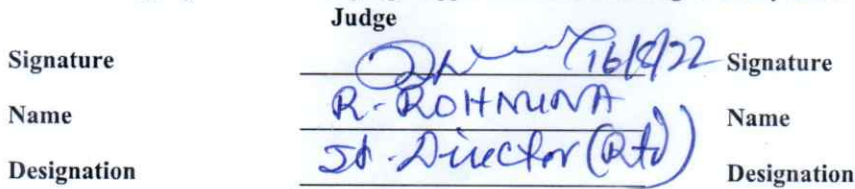 Judge
Signature 16/8/22 Signature
Name R. ROHNUNA Name
Designation Jt. Director (Rtd) Designation